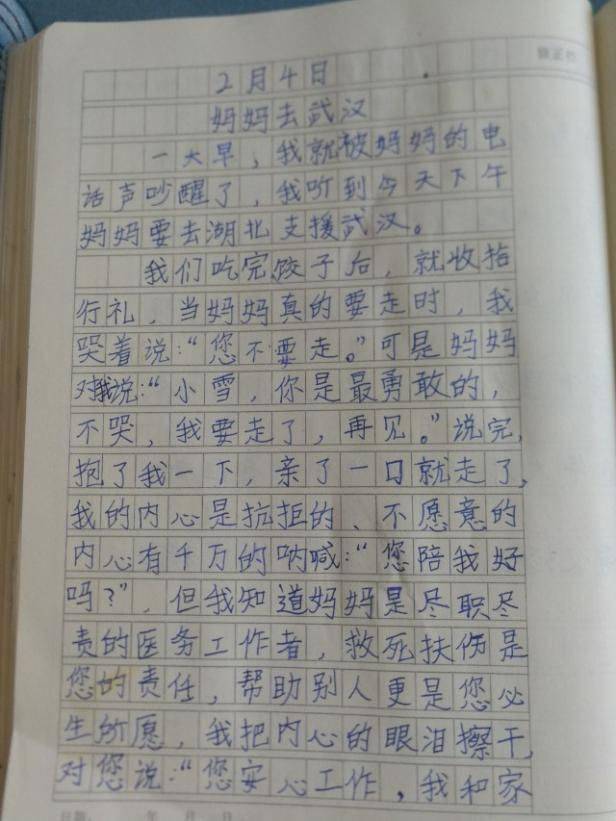 2月4日
妈妈去武汉
一大早，我就被妈妈的电
话声吵醒了，我听到今天下午
妈妈要去湖北支援武汉。
我们吃完饺子后，就收拾
行礼，当妈妈真的要走时，我
哭着说：“您不要走。”可是妈妈
对我说：“小雪，你是最勇敢的，
不哭，我要走了，再见。”说完，
抱了我一下，亲了一口就走了，
我的内心是抗拒的、不愿意的
内心有千万的呐喊：“您陪我好
吗？”，但我知道妈妈是尽职尽
责的医务工作者，救死扶伤是
您的责任，帮助别人更是您必
生所愿，我把内心的眼泪擦干，
对您说：“您安心工作，我和家